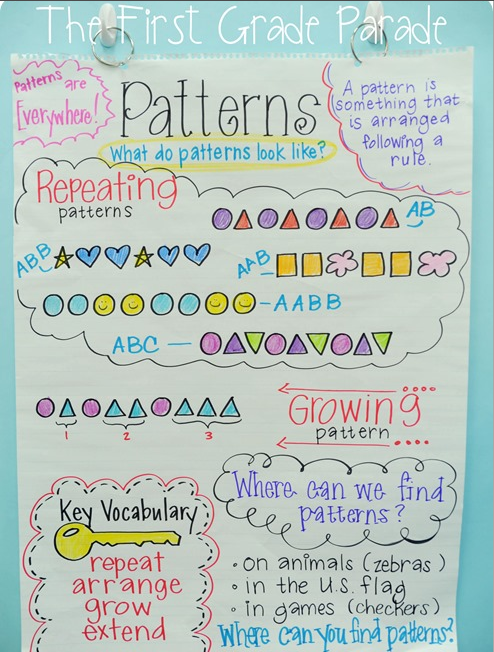 The First Grade Parade
Patterns
are
Everywhere!
Patterns
What do patterns look like?
A pattern is
something that
is arranged
following a
rule.
Repeating
patterns
AB
ABB
AAB
AABB
ABC
1 2 3
Growing
pattern
Key Vocabulary
repeat
arrange
grow
extend
Where can we find
patterns?
• on animals (zebras)
• in the U.S. flag
• in games (checkers)
Where can you find patterns?